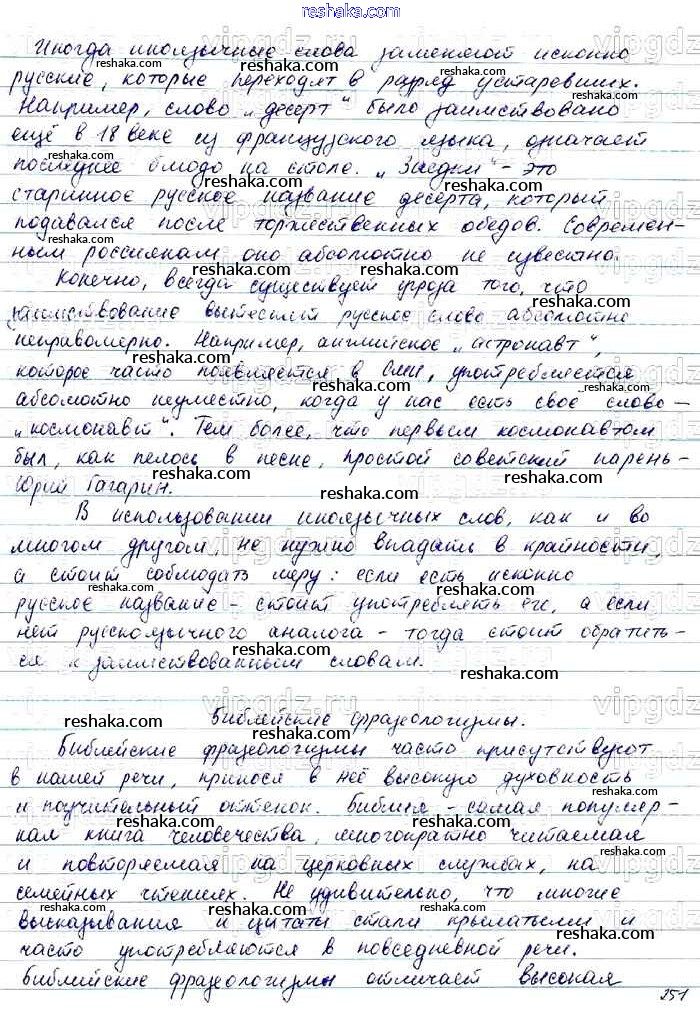 reshaka.com
Иногда иноязычные слова заменяют исконно
русские, которые переходят в разряд устаревших.
Например, слово „десерт“ было заимствовано
ещё в 18 веке из французского языка, означает
последнее блюдо на столе. „Заедки“ - это
старинное русское название десерта, который
подавался после торжественных обедов. Современ-
ным россиянам оно абсолютно не известно.
Конечно, всегда существует угроза того, что
заимствование вытеснит русское слово абсолютно
неправомерно. Например, английское „астронавт“,
которое часто появляется в СМИ, употребляется
абсолютно неуместно, когда у нас есть своё слово -
„космонавт“. Тем более, что первым космонавтом
был, как пелось в песне, простой советский парень -
Юрий Гагарин.
В использовании иноязычных слов, как и во
многом другом, не нужно впадать в крайности,
а стоит соблюдать меру: если есть исконно
русское название - стоит употреблять его, а если
нет русскоязычного аналога - тогда стоит обратить-
ся к заимствованным словам.
Библейские фразеологизмы.
Библейские фразеологизмы часто присутствуют
в нашей речи, принося в неё высокую духовность
и поучительный оттенок. Библия - самая популяр-
ная книга человечества, многократно читаемая
и повторяемая на церковных службах, на
семейных чтениях. Не удивительно, что многие
высказывания и цитаты стали крылатыми и
часто употребляются в повседневной речи.
Библейские фразеологизмы отличает высокая
251